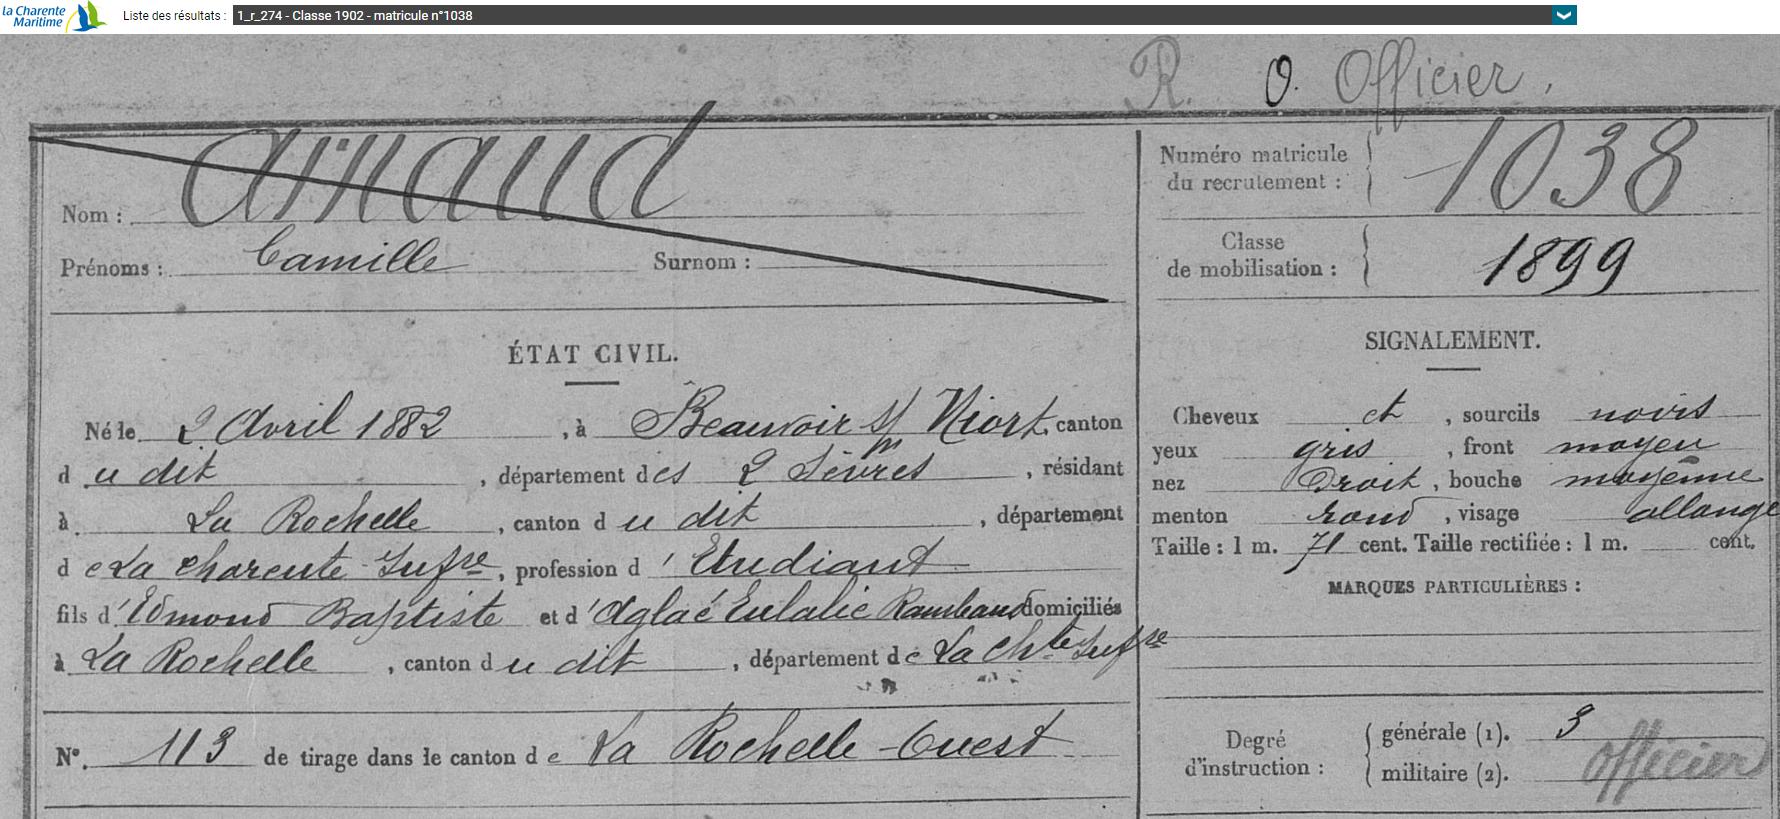 la Charente
Maritime
Liste des résultats : 1_r_274 - Classe 1902 - matricule n°1038
R. O. Officier.
Nom : Arnaud
Prénoms : Camille Surnom :
Numéro matricule
du recrutement : 1038
Classe
de mobilisation : 1899
ÉTAT CIVIL.
Né le 2 Avril 1882, à Beauvoir s/ Niort, canton
du dit, département des 2 Sèvres, résidant
à La Rochelle, canton du dit, département
de La Charente Infre, profession d'Etudiant
fils d'Edmond Baptiste et d'Aglaé Eulalie Rambaud domiciliés
à La Rochelle, canton du dit, département de La Chte Infre
N° 113 de tirage dans le canton de La Rochelle-Ouest
SIGNALEMENT.
Cheveux et, sourcils noirs
yeux gris, front moyen
nez Droit, bouche moyenne
menton rond, visage allongé
Taille : 1 m. 71 cent. Taille rectifiée : 1 m. cent.
MARQUES PARTICULIÈRES :
Degré
d'instruction :
générale (1). 3
militaire (2). officier